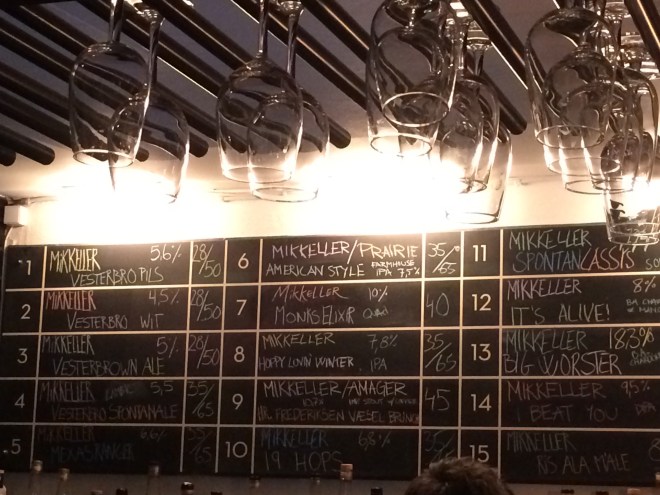 1 MIKKELLER 5,6% 28/50
VESTERBRO PILS
2 MIKKELLER 4,5% 28/50
VESTERBRO WIT
3 MIKKELLER 5% 28/50
VESTERBROWN ALE
4 MIKKELLER 5,5 35/65
VESTERBRO SPONTANALE
5 MIKKELLER 6,6% 35/65
MEXAS RANGER
6 MIKKELLER/PRAIRIE 35/65
AMERICAN STYLE FARMHOUSE IPA 7,5%
7 Mikkeller 10% 40
MONKS ELIXIR Quad
8 MIKKELLER 7,8% 35/65
HOPPY LOVIN' WINTER. IPA
9 MIKKELLER/AMAGER 45
HR. FREDERIKSEN VÆSEL BRUNCH
10 MIKKELLER 6,8% 35
19 HOPS
11 MIKKELLER
SPONTANCASSIS
12 MIKKELLER 8%
IT'S ALIVE! BA
13 MIKKELLER 18,3%
BIG WORSTER
14 MIKKELLER 9,5%
I BEAT YOU
15 MIKKELLER 8%
RIS ALA M'ALE